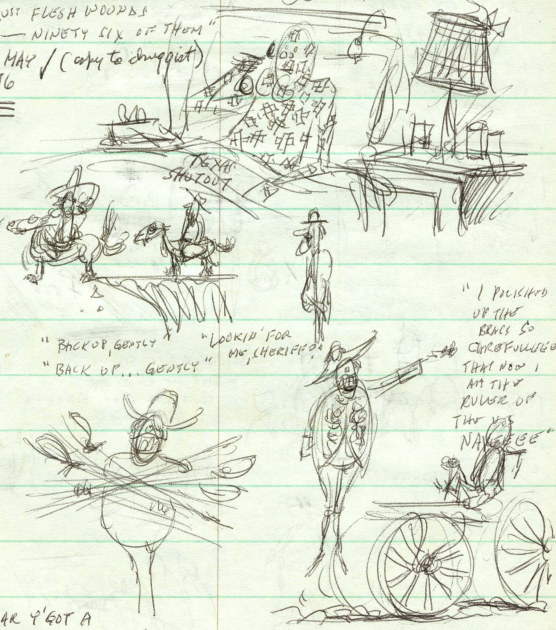 UST FLESH WOUNDS
— NINETY SIX OF THEM"
MAY ✓ (copy to druggist)
76
SHUTOUT
"BACK UP, GENTLY"
"BACK UP... GENTLY"
"LOOKIN' FOR
ME, SHERIFF?"
"I POLISHED
UP THE
BRASS SO
CAREFULLEEE
THAT NOW I
AM THE
RULER OF
THE
NAVEEEE"
AR Y'GOT A